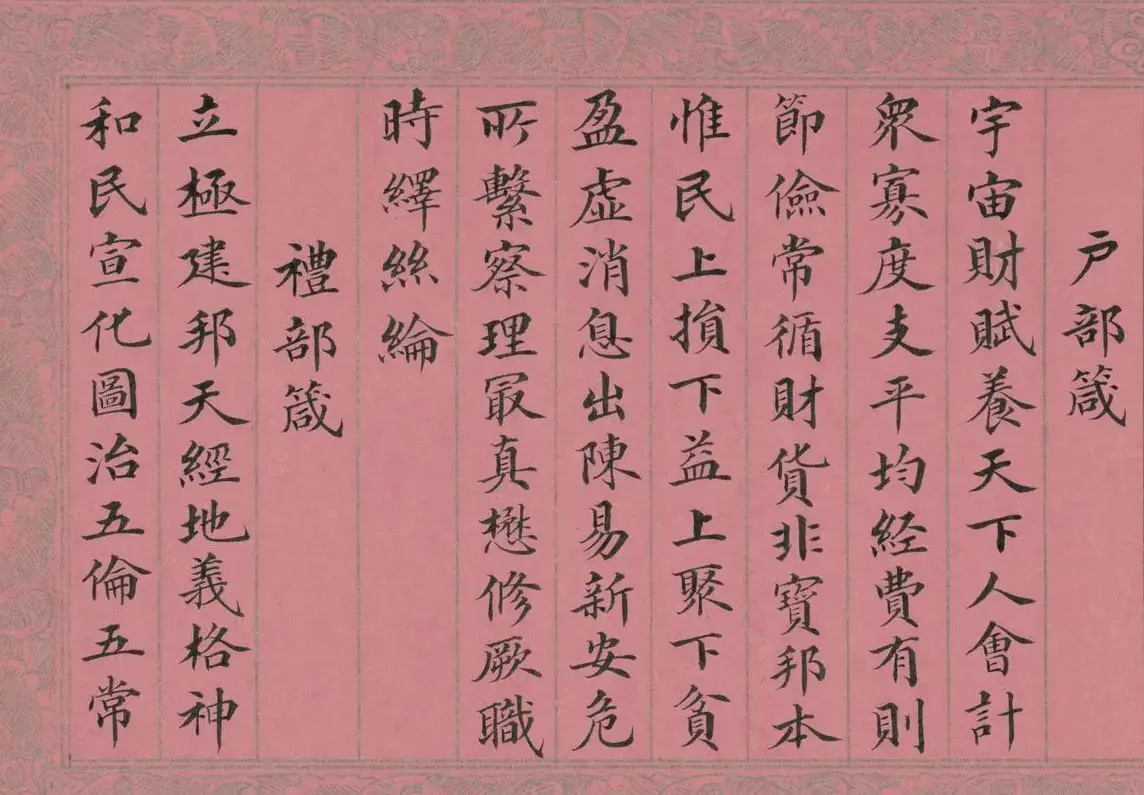 戶部箴
宇宙財賦養天下人會計
衆寡度支平均経費有則
節儉常循財貨非寶邦本
惟民上損下益上聚下貧
盈虛消息出陳易新安危
所繫察理冣真懋修厥職
時繹絲綸
禮部箴
立極建邦天經地義格神
和民宣化圖治五倫五常